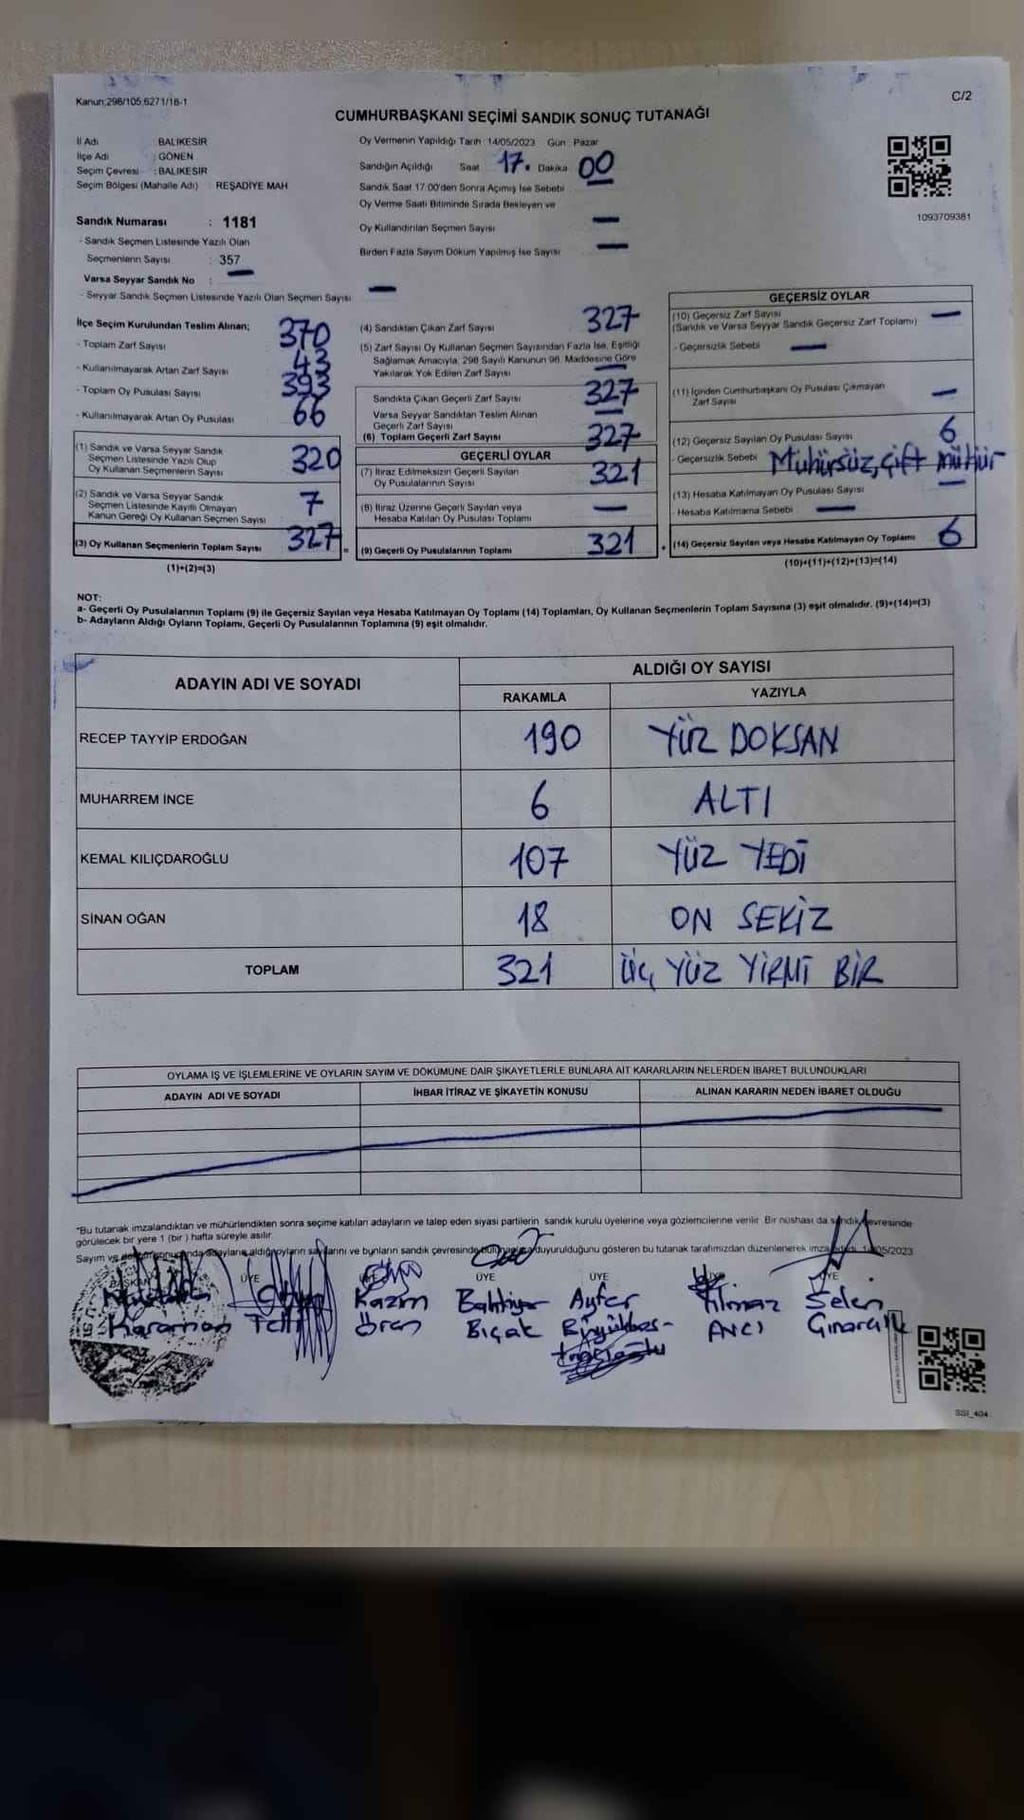 Kanun:298/105,6271/16-1
C/2
CUMHURBAŞKANI SEÇİMİ SANDIK SONUÇ TUTANAĞI
İl Adı BALIKESİR
İlçe Adı : GÖNEN
Seçim Çevresi : BALIKESİR
Seçim Bölgesi (Mahalle Adı) : REŞADİYE MAH
Sandık Numarası : 1181
- Sandık Seçmen Listesinde Yazılı Olan
Seçmenlerin Sayısı : 357
Varsa Seyyar Sandık No : —
- Seyyar Sandık Seçmen Listesinde Yazılı Olan Seçmen Sayısı —
Oy Vermenin Yapıldığı Tarih :14/05/2023 Gün : Pazar
Sandığın Açıldığı Saat 17. Dakika 00
Sandık Saat 17.00'den Sonra Açmış İse Sebebi
Oy Verme Saati Bitiminde Sırada Bekleyen ve
Oy Kullandırılan Seçmen Sayısı —
Birden Fazla Sayım Döküm Yapılmış İse Sayısı —
1093709381
İlçe Seçim Kurulundan Teslim Alınan;
- Toplam Zarf Sayısı 370
- Kullanılmayarak Artan Zarf Sayısı 43
- Toplam Oy Pusulası Sayısı 393
- Kullanılmayarak Artan Oy Pusulası 66
(1) Sandık ve Varsa Seyyar Sandık
Seçmen Listesinde Yazılı Olup
Oy Kullanan Seçmenlerin Sayısı 320
(2) Sandık ve Varsa Seyyar Sandık
Seçmen Listesinde Kayıtlı Olmayan
Kanun Gereği Oy Kullanan Seçmen Sayısı 7
(3) Oy Kullanan Seçmenlerin Toplam Sayısı 327
(1)+(2)=(3)
(4) Sandıktan Çıkan Zarf Sayısı 327
(5) Zarf Sayısı Oy Kullanan Seçmen Sayısından Fazla İse, Eşitliği
Sağlamak Amacıyla, 298 Sayılı Kanunun 98. Maddesine Göre
Yakılarak Yok Edilen Zarf Sayısı —
Sandıkta Çıkan Geçerli Zarf Sayısı 327
Varsa Seyyar Sandıktan Teslim Alınan
Geçerli Zarf Sayısı —
(6) Toplam Geçerli Zarf Sayısı 327
GEÇERLİ OYLAR
(7) İtiraz Edilmeksizin Geçerli Sayılan
Oy Pusulalarının Sayısı 321
(8) İtiraz Üzerine Geçerli Sayılan veya
Hesaba Katılan Oy Pusulası Toplamı —
(9) Geçerli Oy Pusulalarının Toplamı 321
GEÇERSİZ OYLAR
(10) Geçersiz Zarf Sayısı —
(Sandık ve Varsa Seyyar Sandık Geçersiz Zarf Toplamı)
- Geçersizlik Sebebi —
(11) İçinden Cumhurbaşkanı Oy Pusulası Çıkmayan
Zarf Sayısı —
(12) Geçersiz Sayılan Oy Pusulası Sayısı 6
- Geçersizlik Sebebi Mühürsüz, çift mühür
(13) Hesaba Katılmayan Oy Pusulası Sayısı —
- Hesaba Katılmama Sebebi —
(14) Geçersiz Sayılan veya Hesaba Katılmayan Oy Toplamı 6
(10)+(11)+(12)+(13)=(14)
NOT:
a- Geçerli Oy Pusulalarının Toplamı (9) ile Geçersiz Sayılan veya Hesaba Katılmayan Oy Toplamı (14) Toplamları, Oy Kullanan Seçmenlerin Toplam Sayısına (3) eşit olmalıdır. (9)+(14)=(3)
b- Adayların Aldığı Oyların Toplamı, Geçerli Oy Pusulalarının Toplamına (9) eşit olmalıdır.
ADAYIN ADI VE SOYADI ALDIĞI OY SAYISI
RAKAMLA YAZIYLA
RECEP TAYYİP ERDOĞAN 190 YÜZ DOKSAN
MUHARREM İNCE 6 ALTI
KEMAL KILIÇDAROĞLU 107 YÜZ YEDİ
SİNAN OĞAN 18 ON SEKİZ
TOPLAM 321 ÜÇ YÜZ YİRMİ BİR
OYLAMA İŞ VE İŞLEMLERİNE VE OYLARIN SAYIM VE DÖKÜMÜNE DAİR ŞİKAYETLERLE BUNLARA AİT KARARLARIN NELERDEN İBARET BULUNDUKLARI
ADAYIN ADI VE SOYADI İHBAR İTİRAZ VE ŞİKAYETİN KONUSU ALINAN KARARIN NEDEN İBARET OLDUĞU
"Bu tutanak imzalandıktan ve mühürlendikten sonra seçime katılan adayların ve talep eden siyasi partilerin sandık kurulu üyelerine veya gözlemcilerine verilir. Bir nüshası da sandık çevresinde
görülecek bir yere 1 (bir) hafta süreyle asılır.
Sayım ve adayların aldığı oyların sayılarını ve bunların sandık çevresinde duyurulduğunu gösteren bu tutanak tarafımızdan düzenlenerek
BAŞKAN ÜYE ÜYE ÜYE ÜYE ÜYE
Kazım Bahtiyar Ayfer Yılmaz Selen
Karaman Ören Bıçak AVCI
SSI_404